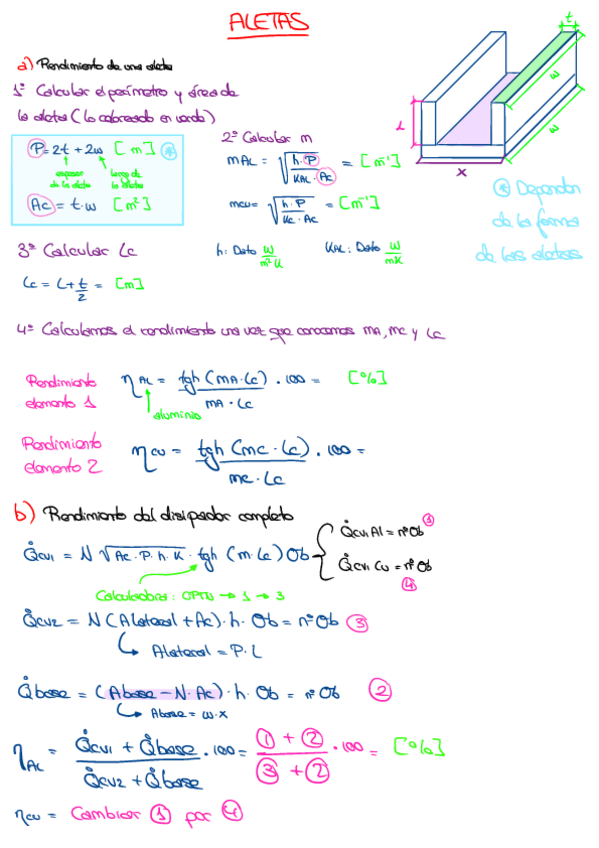 ALETAS
a) Rendimiento de una aleta
1º Calcular el perímetro y área de
la aleta (lo coloreado en verde)
P = 2t + 2w [m] *
espesor de la aleta
largo de la aleta
Ac = t·w [m²]
2º Calcular m
mAL = √(h·P / KAL·Ac) = [m⁻¹]
mcu = √(h·P / Kc·Ac) = [m⁻¹]
t
w
w
L
x
* Dependen
de la forma
de las aletas
3º Calcular Lc
Lc = L + t/2 = [m]
h: Dato W/m²K
KAL: Dato W/mK
4º Calculamos el rendimiento una vez que conocemos mA, mc y Lc
Rendimiento
elemento 1
ηAL = tgh (mA·Lc) / mA·Lc · 100 = [%]
aluminio
Rendimiento
elemento 2
ηcu = tgh (mc·Lc) / mc·Lc · 100 =
b) Rendimiento del disipador completo
Q̇cv1 = N √(Ac·P·h·K) · tgh (m·Lc) θb
Q̇cv1 Al = nº θb ①
Q̇cv1 Cu = nº θb ④
Calculadora: OPTN → 1 → 3
Q̇cv2 = N (Alateral + Ac)·h·θb = nº θb ③
Alateral = P·L
Q̇base = (Abase − N·Ac)·h·θb = nº θb ②
Abase = w·x
ηAL = (Q̇cv1 + Q̇base) / (Q̇cv2 + Q̇base) · 100 = (① + ②) / (③ + ②) · 100 = [%]
ηcu = Cambiar ① por ④